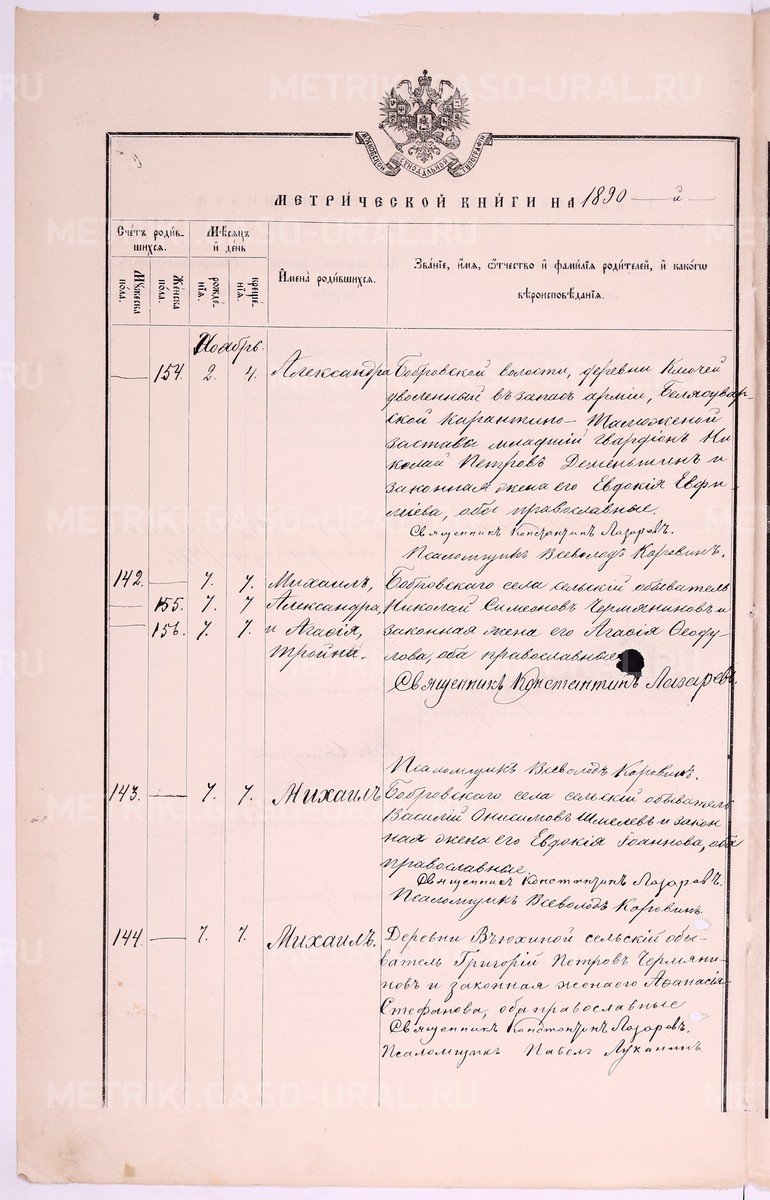 МЕТРИ́ЧЕСКОЙ КНИ́ГИ НА 1890 — й —
Счетъ роди́в-
шихся.
Мꙋжеска
пола.
Женска
пола.
Мѣсяцъ
и҆ де́нь
рожде-
нїя.
креще-
нїя.
И҆мена̀ роди́вшихся.
Зва́нїе, и҆́мя, ѻ҆́тчество и҆ фами́лїя роди́телей, и҆ како́гѡ
вѣроисповѣ́данїя.
Ноябрь.
— 154. 2. 4. Александра
Бобровской волости, деревни Ключей
уволенный въ запас арміи, Белясувар-
ской Карантино-Таможеной
заставы младшій гвардіонъ Ни-
колай Петровъ Деменьшинъ и
законная жена его Евдокія Евфи-
міева, обе православные.
Священникъ Константинъ Лазаровъ.
Псаломщикъ Всеволодъ Коровинъ.
142. — 7. 7. Михаилъ,
— 155. 7. 7 Александра,
— 156. 7. 7. и Агасія,
тройни.
Бобровскаго села сельскій обыватель
Николай Симеоновъ Чермяниновъ и
законная жена его Агасія Ѳеоду-
лова, оба православные
Священникъ Константинъ Лазаревъ.
Псаломщикъ Всеволодъ Коровинъ.
143. — 7. 7. Михаилъ
Бобровскаго села сельскій обыватель
Василій Онисимовъ Шмелевъ и закон
ная жена его Евдокія Іоаннова, оба
православные.
Священникъ Константинъ Лазаровъ.
Псаломщикъ Всеволодъ Коровинъ.
144. — 7. 7. Михаилъ.
Деревни Вьюхиной сельскій обы-
ватель Григорій Петровъ Чермяни-
новъ и законная жена его Аѳанасія
Стефанова, оба православные
Священникъ Константинъ Лазаровъ.
Псаломщикъ Павелъ Луканинъ.
METRIKI.GASO-URAL.RU